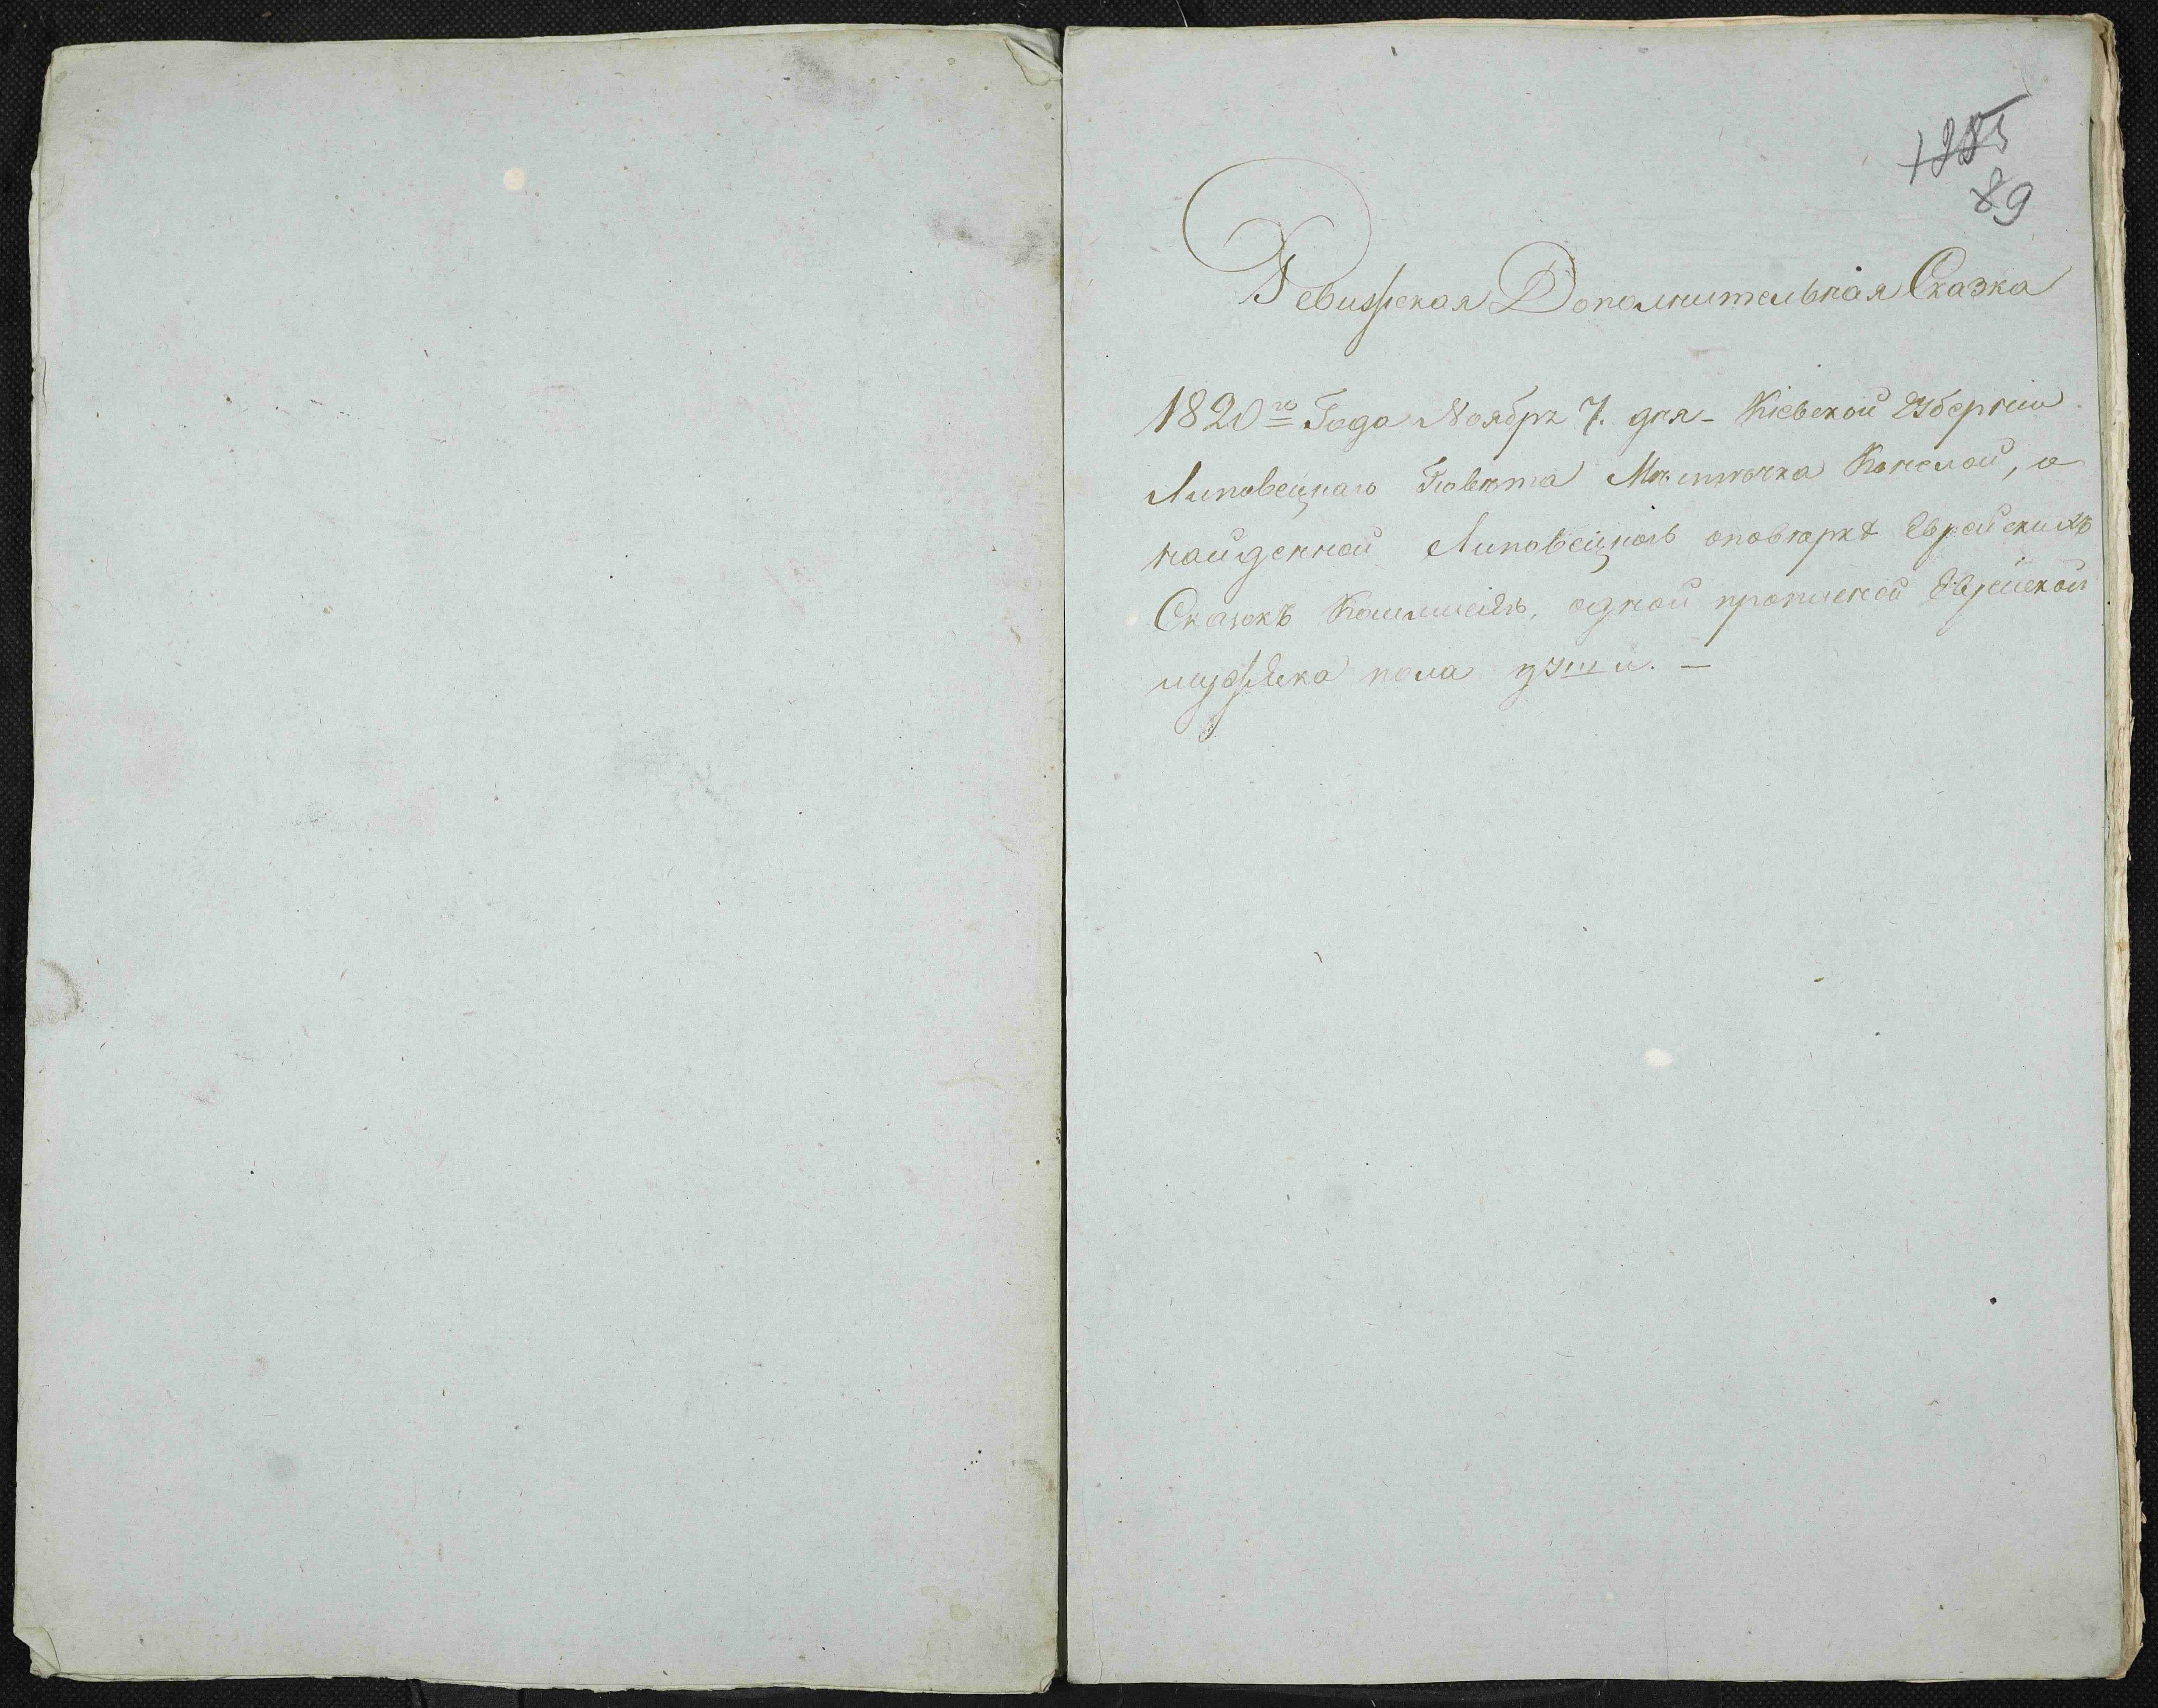 89
Ревизская Дополнительная Сказка
1820го Года Ноября 7. дня - Кіевской Губерніи
Липовецкаго Повета Местечка Конелой, о
найденной Липовецкою оповерке Еврейскихъ
Сказокъ Коммисіею, одной прописной Еврейской
мужеска пола души. —